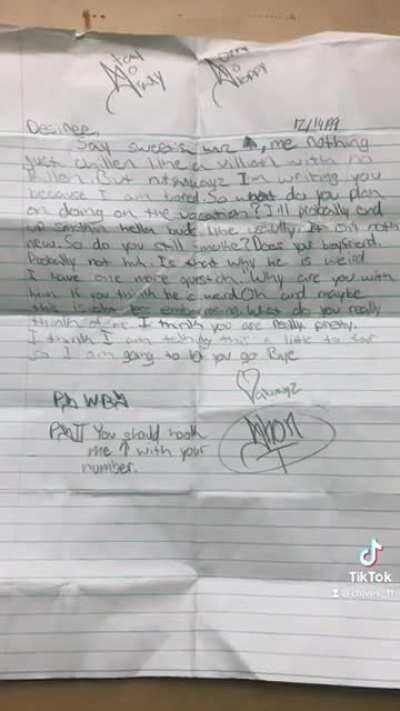 Stay
Sorry
Desiree,
12/14/99
Say sweets wuz ↑, me nothing
Just chillen like a villan with no
But I'm writing you
because I am bored. So what do you plan
on doing on the vacation? I'll probally end
up hella bude like usually. It isn't noth
new. So do you still smoke? Does your boyfriend.
Probally not huh. Is that why he is weird
I have one more question. "Why are you with
him if you think he a weird Oh and maybe
this is embarrasing. What do you really
think of me. I think you are really pretty.
I think I am taking this a little to far
so I am going to let you go Bye
♡ alwayz
P.S. W.B.S
P.S II You should hook
me ↑ with your
number.
TikTok